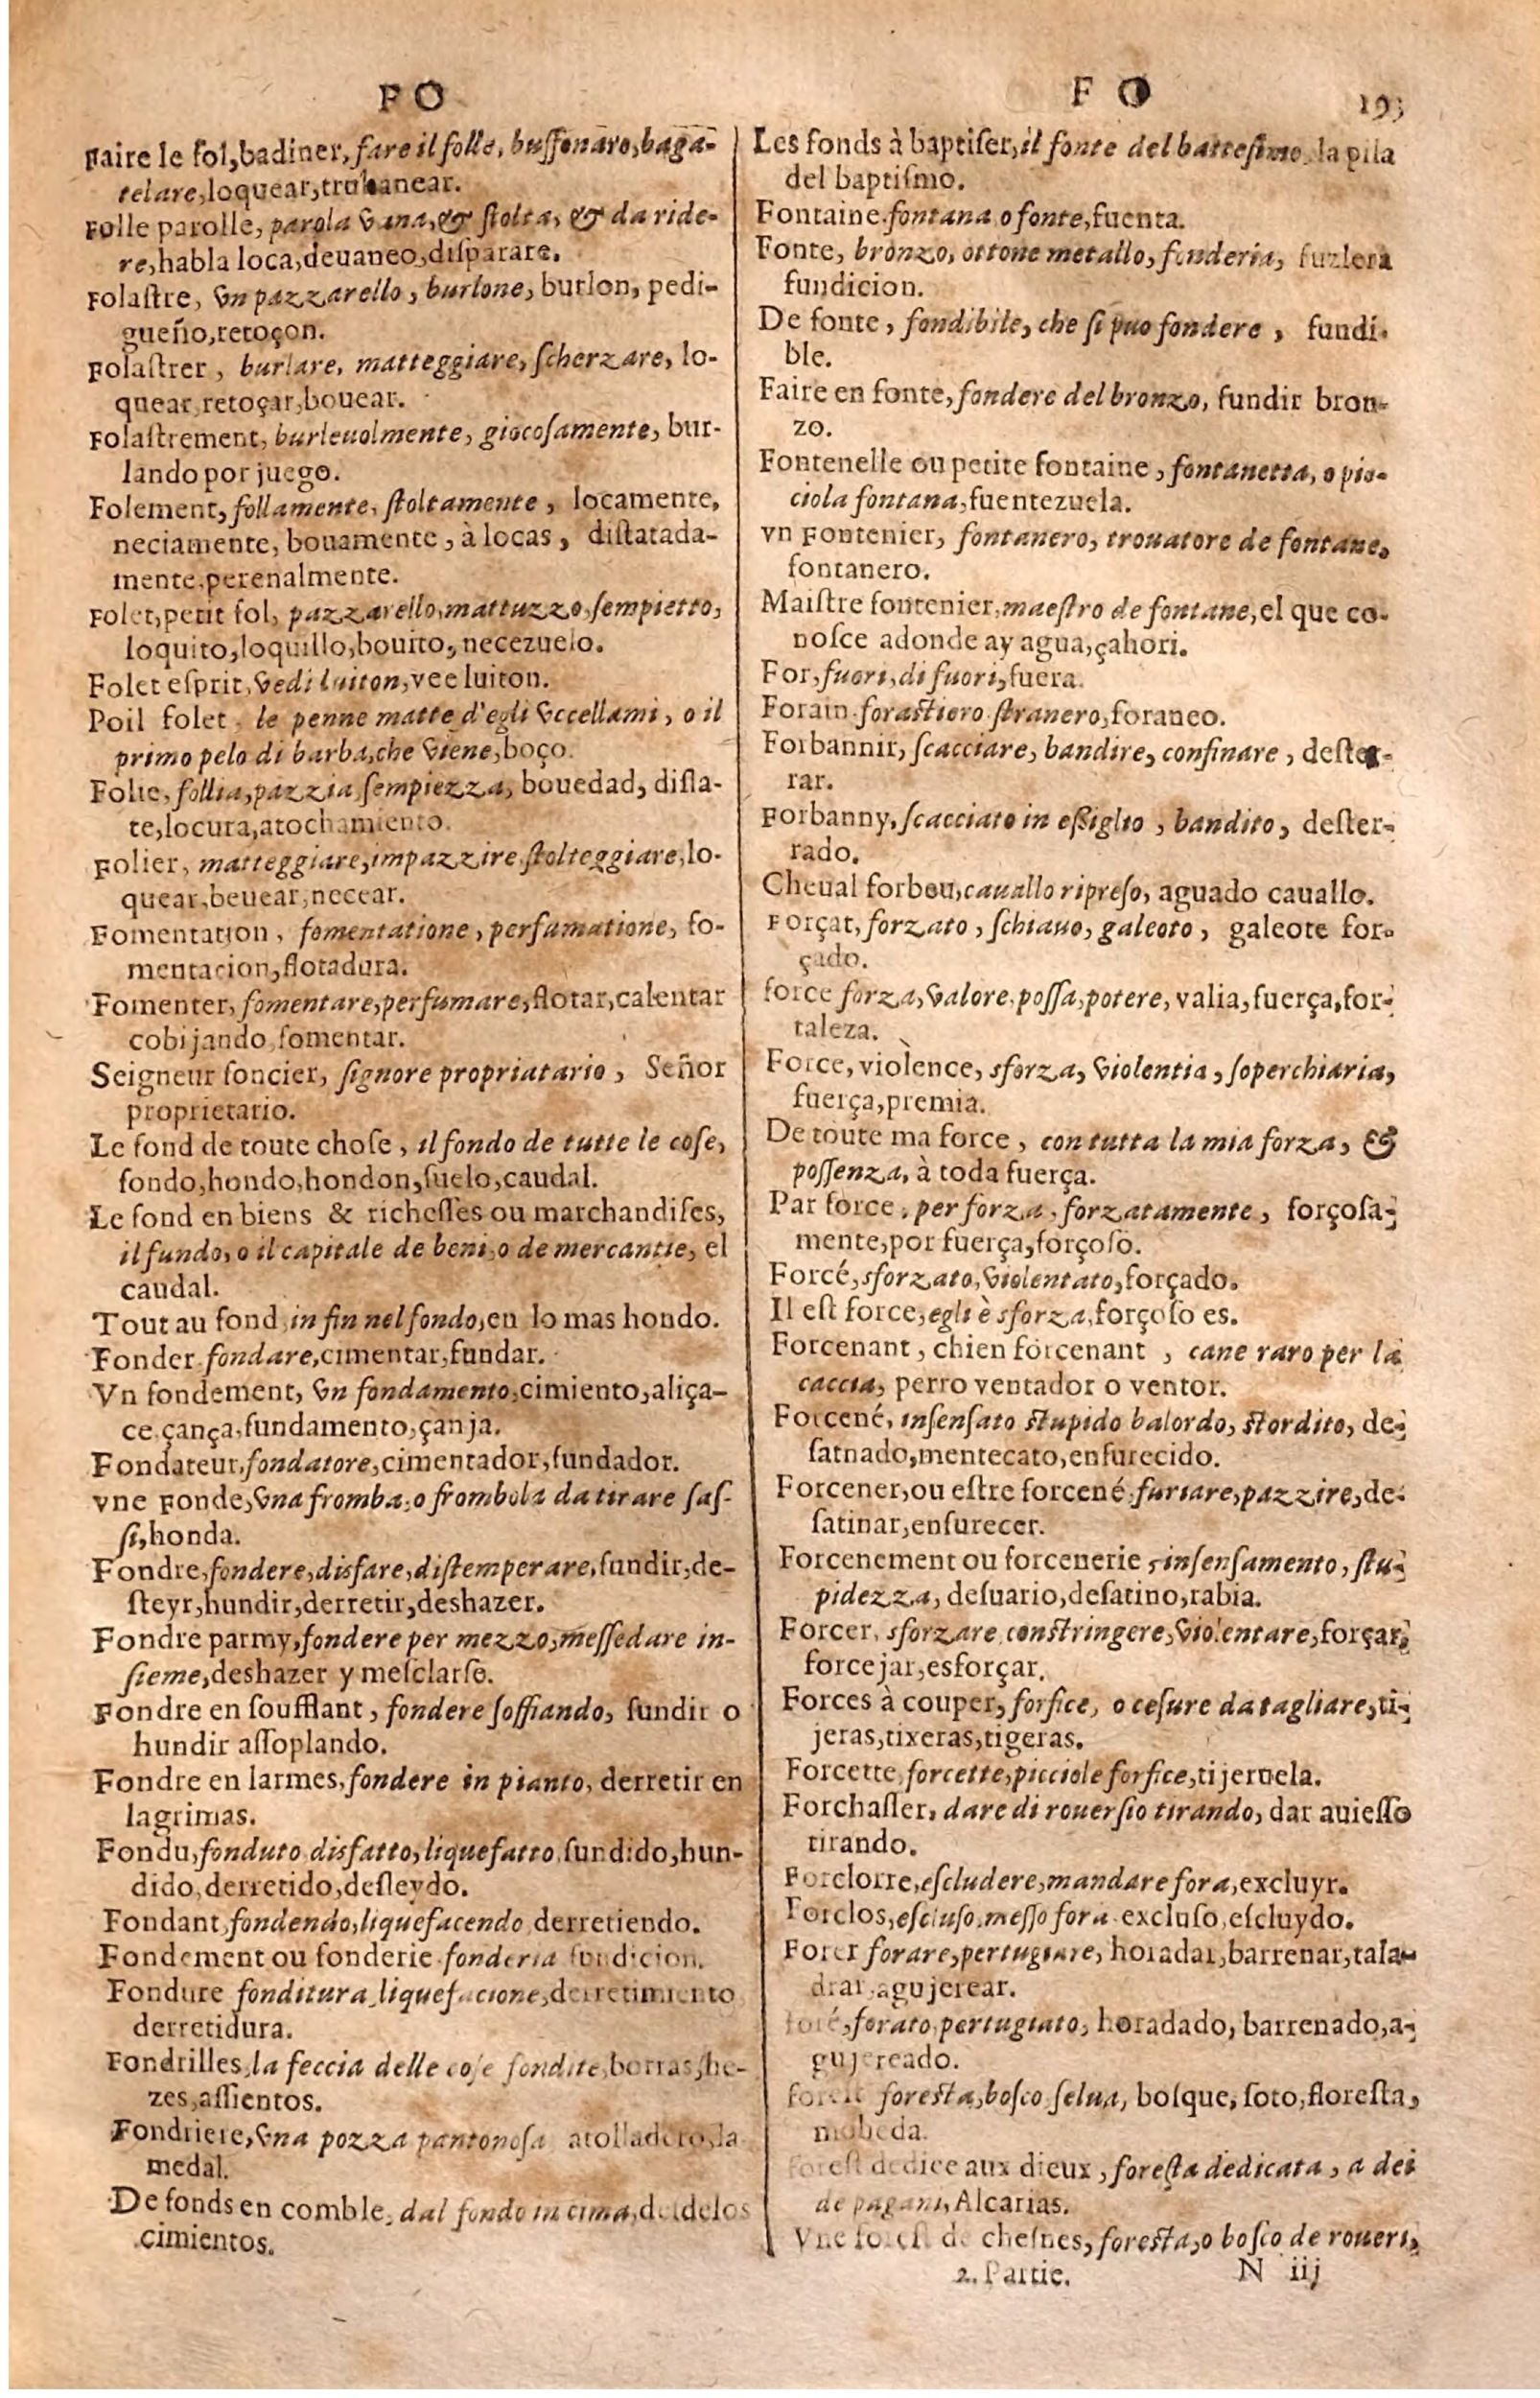 FO
Faire le fol, badiner, fare il folle, buffonare, baga-
telare, loquear, truhanear.
Folle parolle, parola vana, & stolta, & da ride-
re, habla loca, deuaneo, disparare.
Folaſtre, vn pazzarello, burlone, burlon, pedi-
gueño, retoçon.
Folaſtrer, burlare, matteggiare, ſcherzare, lo-
quear, retoçar, bouear.
Folaſtrement, burleuolmente, giocoſamente, bur-
lando por juego.
Folement, follamente, ſtoltamente, locamente,
neciamente, bouamente, à locas, diſtatada-
mente, perenalmente.
Folet, petit fol, pazzarello, mattuzzo, ſempietto,
loquito, loquillo, bouito, necezuelo.
Folet eſprit, vedi luiton, vee luiton.
Poil folet, le penne matte d'egli vccellami, o il
primo pelo di barba, che viene, boço.
Folie, follia, pazzia, ſempiezza, bouedad, diſla-
te, locura, atochamiento.
Folier, matteggiare, impazzire, ſtolteggiare, lo-
quear, beuear, necear.
Fomentation, fomentatione, perfumatione, fo-
mentacion, flotadura.
Fomenter, fomentare, perfumare, flotar, calentar
cobijando, fomentar.
Seigneur foncier, ſignore propriatario, Señor
proprietario.
Le fond de toute choſe, il fondo de tutte le coſe,
fondo, hondo, hondon, ſuelo, caudal.
Le fond en biens & richeſſes ou marchandiſes,
il fundo, o il capitale de beni, o de mercantie, el
caudal.
Tout au fond, in fin nel fondo, en lo mas hondo.
Fonder, fondare, cimentar, fundar.
Vn fondement, vn fondamento, cimiento, aliça-
ce, çança, fundamento, çanja.
Fondateur, fondatore, cimentador, fundador.
vne Fonde, vna fromba, o frombola da tirare ſaſ-
ſi, honda.
Fondre, fondere, disfare, diſtemperare, fundir, de-
ſteyr, hundir, derretir, deshazer.
Fondre parmy, fondere per mezzo, meſſedare in-
ſieme, deshazer y meſclarſe.
Fondre en soufflant, fondere ſoffiando, fundir o
hundir aſſoplando.
Fondre en larmes, fondere in pianto, derretir en
lagrimas.
Fondu, fonduto, disfatto, liquefatto, fundido, hun-
dido, derretido, deſleydo.
Fondant, fondendo, liquefacendo, derretiendo.
Fondement ou fonderie, fonderia, fundicion.
Fondure, fonditura, liquefacione, derretimiento
derretidura.
Fondrilles, la feccia delle coſe fondite, borras, he-
zes, aſſientos.
Fondriere, vna pozza pantonoſa, atolladero, la
medal.
De fonds en comble, dal fondo in cima, deſdelos
cimientos.
FO 193
Les fonds à baptiſer, il fonte del batteſimo, la pila
del baptiſmo.
Fontaine, fontana o fonte, fuenta.
Fonte, bronzo, ottone metallo, fonderia, fuzlera
fundicion.
De fonte, fondibile, che ſi puo fondere, fundi-
ble.
Faire en fonte, fondere del bronzo, fundir bron-
zo.
Fontenelle ou petite fontaine, fontanetta, o pic-
ciola fontana, fuentezuela.
vn Fontenier, fontanero, trouatore de fontane,
fontanero.
Maiſtre fontenier, maeſtro de fontane, el que co-
noſce adonde ay agua, çahori.
For, fuori, di fuori, fuera.
Forain, foraſtiero ſtranero, foraneo.
Forbannir, ſcacciare, bandire, confinare, deſter-
rar.
Forbanny, ſcacciato in eſſiglio, bandito, deſter-
rado.
Cheual forbou, cauallo ripreſo, aguado cauallo.
Forçat, forzato, ſchiauo, galeoto, galeote for-
çado.
force forza, valore, poſſa, potere, valia, fuerça, for-
taleza.
Force, violence, sforza, violentia, ſoperchiaria,
fuerça, premia.
De toute ma force, con tutta la mia forza, &
poſſenza, à toda fuerça.
Par force, per forza, forzatamente, forçoſa-
mente, por fuerça, forçoſo.
Forcé, sforzato, violentato, forçado.
Il eſt force, egli è sforza, forçoſo es.
Forcenant, chien forcenant, cane raro per la
caccia, perro ventador o ventor.
Forcené, inſenſato ſtupido balordo, ſtordito, de-
ſatnado, mentecato, enfurecido.
Forcener, ou eſtre forcené, furiare, pazzire, de-
ſatinar, enfurecer.
Forcenement ou forcenerie, inſenſamento, ſtu-
pidezza, deſuario, deſatino, rabia.
Forcer, sforzare, conſtringere, violentare, forçar,
forcejar, esforçar.
Forces à couper, forfice, o ceſure da tagliare, ti-
jeras, tixeras, tigeras.
Forcette, forcette, picciole forfice, tijeruela.
Forchaſſer, dare di rouerſio tirando, dar auieſſo
tirando.
Forclorre, eſcludere, mandare fora, excluyr.
Forclos, eſcluſo, meſſo fora, excluſo, eſcluydo.
Forer forare, pertugiare, horadar, barrenar, tala-
drar, agujerear.
foré, forato, pertugiato, horadado, barrenado, a-
gujereado.
foreſt foreſta, boſco ſelua, boſque, ſoto, floreſta,
moheda.
foreſt dedice aux dieux, foreſta dedicata, a dei
de pagani, Alcarias.
Vne foreſt de cheſnes, foreſta, o boſco de roueri,
2. Partie. N iij